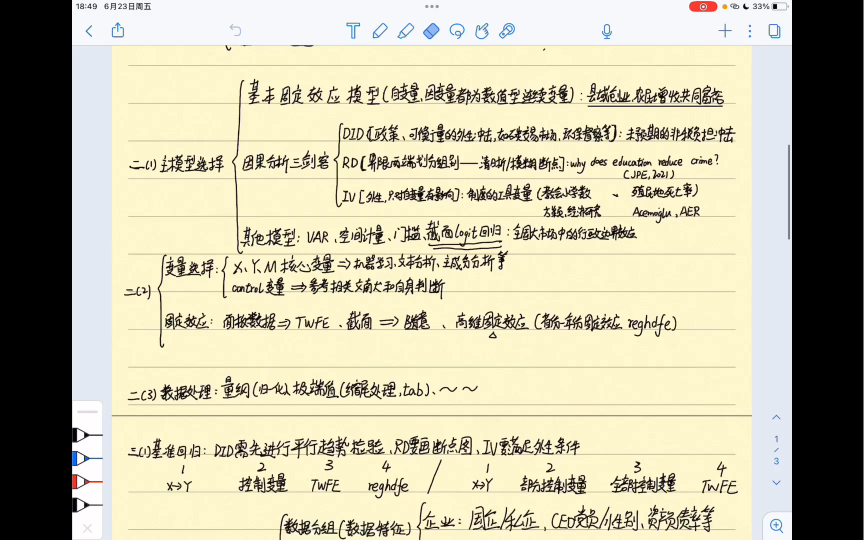 18:49 6月23日周五
33%
基本固定效应模型(自变量,因变量都为数值型连续变量):县域创业,农民增收共同富裕
二(1)主模型选择
因果分析三剑客
DID [政策、可度量的外生冲击,如碳交易市场,环保督察等]:未预期的非税负担冲击
RD [界限两端划分组别——清晰/模糊断点]:why does education reduce crime?
(JPE,2021)
IV [外生,只对自变量有影响]:制度的工具变量(教会小学数、殖民地死亡率)
方颖,经济研究 Acemoglu, AER
其他模型:VAR、空间计量、门槛、截面logit回归:全国大市场中的行政边界效应
二(2)
变量选择:
X、Y、M 核心变量⇒机器学习、文本分析、主成分分析等
control变量⇒参考相关文献和自身判断
固定效应:面板数据⇒TWFE、截面⇒随意、高维固定效应(省份-年份固定效应 reghdfe)
二(3)数据处理:量纲(归一化)、极端值(缩尾处理,tab)、~~
三(1)基准回归:DID需先进行平行趋势检验、RD要画断点图、IV需满足外生条件
1 2 3 4 1 2 3 4
X→Y 控制变量 TWFE reghdfe / X→Y 部分控制变量 全部控制变量 TWFE
数据分组(数据特征)
企业:国企/私企、CEO党员/性别、资产负债率等
1/3